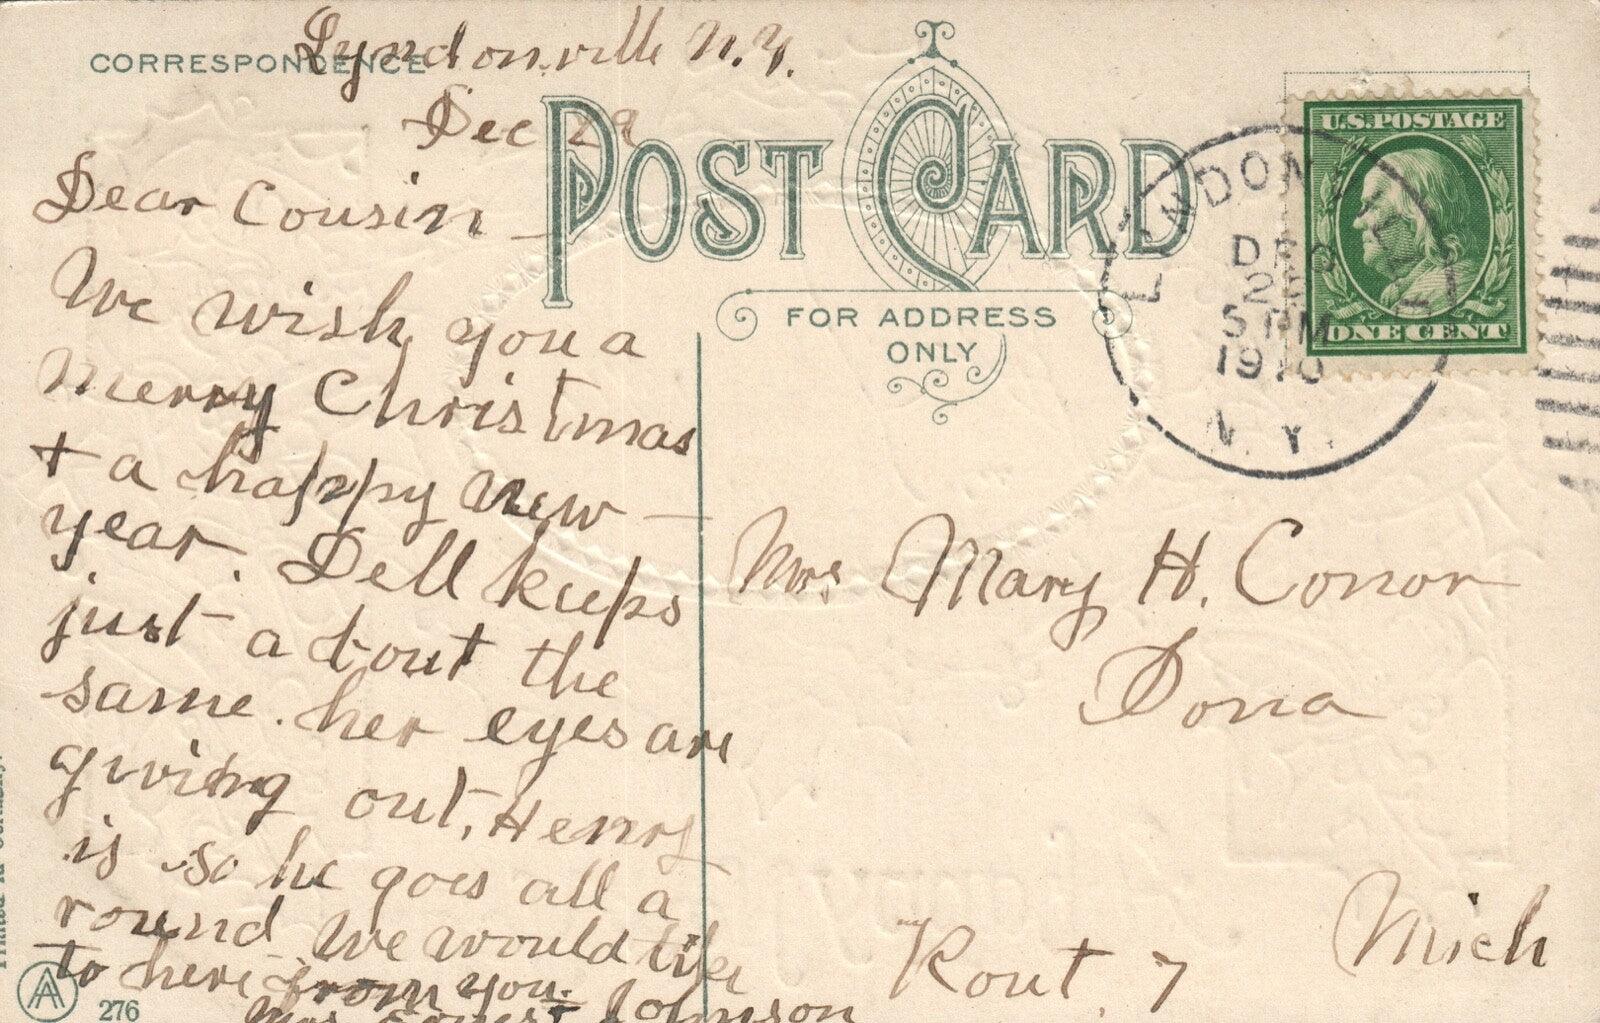 CORRESPONDENCE
Lyndonville N.Y.
Dec 29
POST CARD
FOR ADDRESS
ONLY
U.S. POSTAGE
ONE CENT
LYNDONVILLE
DEC
5 PM
1910
N.Y.
Dear Cousin
We wish you a
merry Christmas
+ a happy new
year. Dell keeps
just about the
same. her eyes are
giving out, Henry
is so he goes all a
round We would like
to here from you.
Mrs Johnson
Mrs Mary H. Conor
Dona
Mich
Rout. 7
276